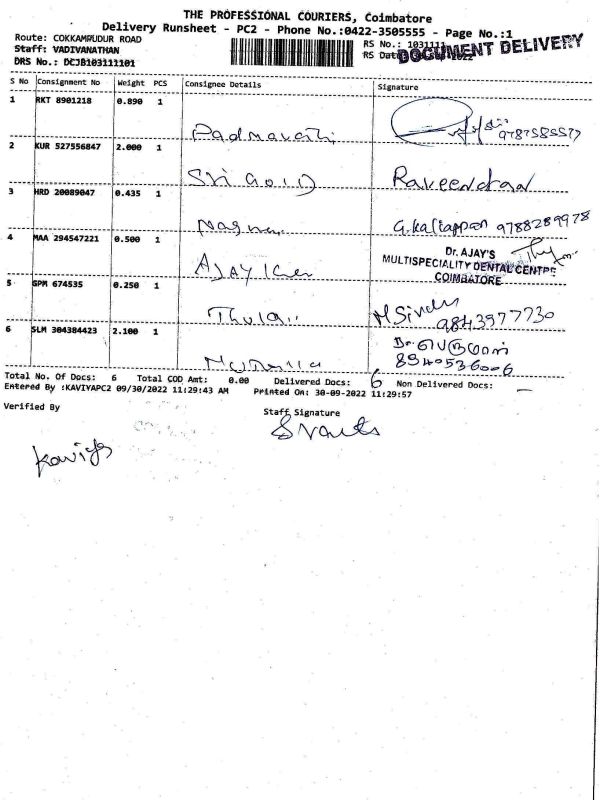 THE PROFESSIONAL COURIERS, Coimbatore
Delivery Runsheet - PC2 - Phone No.:0422-3505555 - Page No.:1
Route: COKKAMPUDUR ROAD
RS No.: 1031111
DOCUMENT DELIVERY
Staff: VADIVANATHAN
RS Dat 2022
DRS No.: DCJB103111101
S No Consignment No Weight PCS Consignee Details Signature
1 RKT 8901218 0.890 1 Padmavathi
2 KUR 527556847 2.000 1 Sri Gold Raveendran
3 HRD 20089047 0.435 1 G.Kaliappan 9788289978
4 MAA 294547221 0.500 1 AJAY
Dr. AJAY'S
MULTISPECIALITY DENTAL CENTRE
COIMBATORE
5 GPM 674535 0.250 1 M Sindhu
9843977730
6 SLM 304384423 2.100 1
8940536006
Total No. Of Docs: 6 Total COD Amt: 0.00 Delivered Docs: 6 Non Delivered Docs: -
Entered By :KAVIYAPC2 09/30/2022 11:29:43 AM Printed On: 30-09-2022 11:29:57
Verified By
Staff Signature
Kaviya